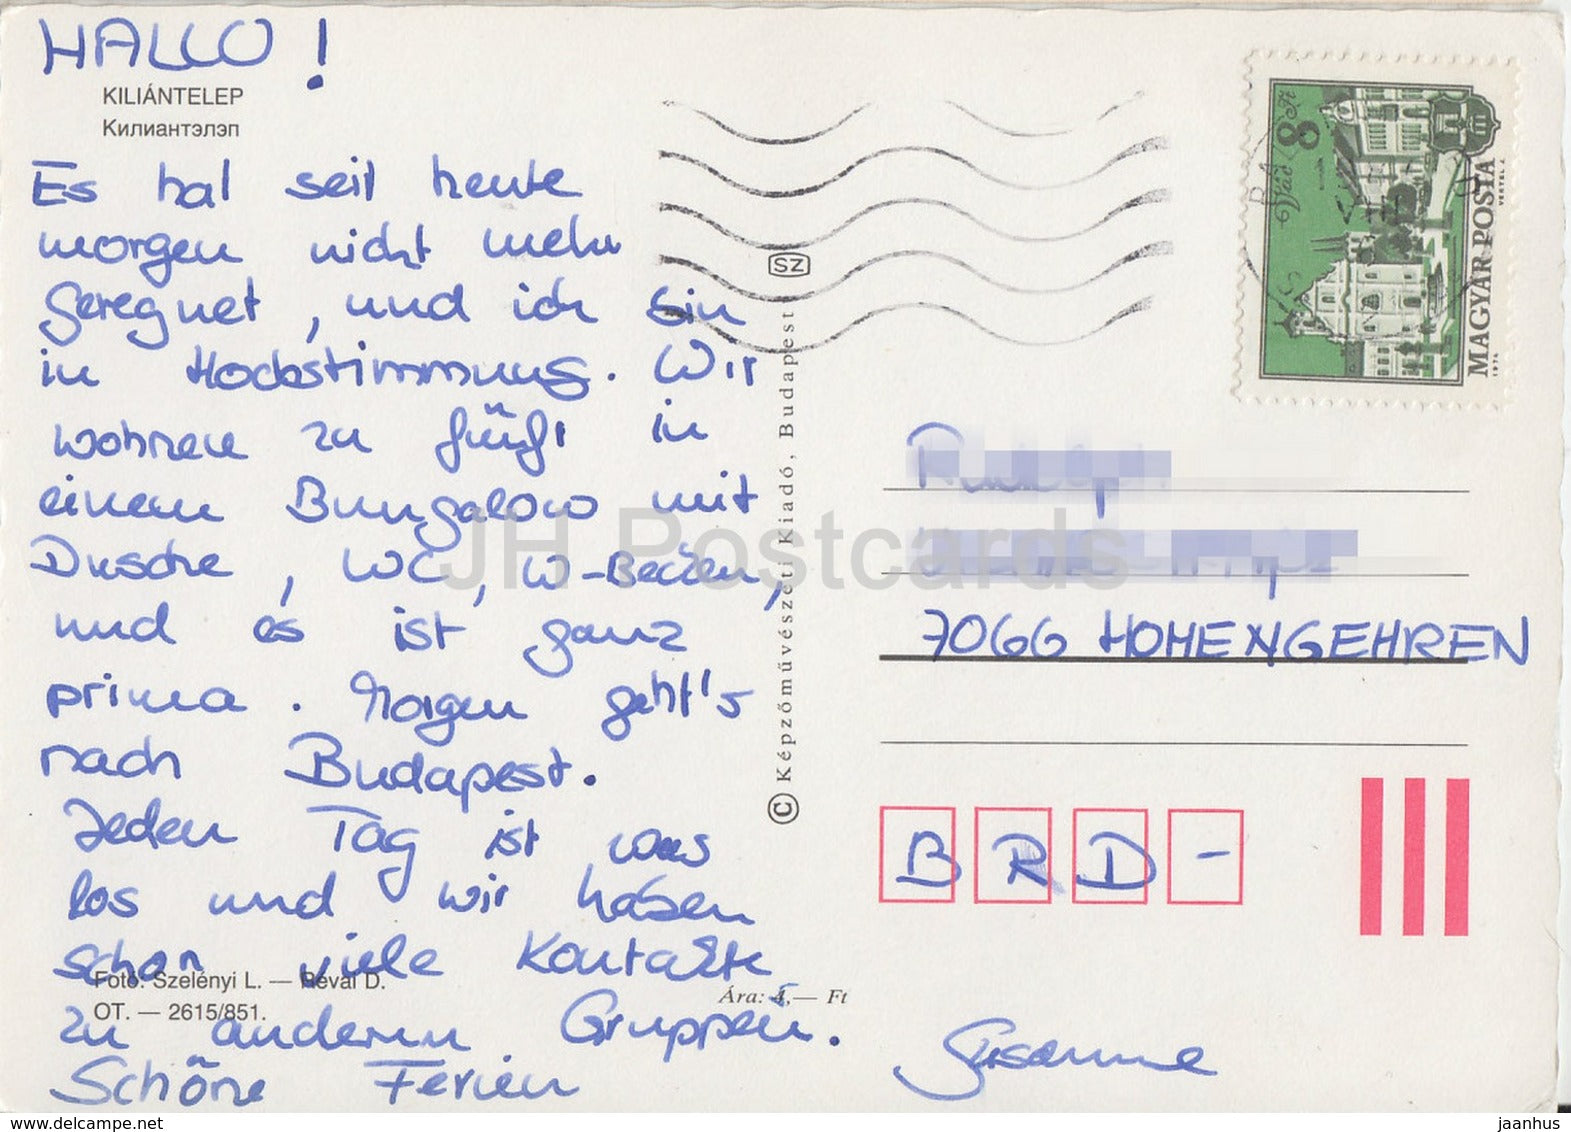 HALLO !
KILIÁNTELEP
Килиантэлэп
Es hat seit heute
morgen nicht mehr
geregnet, und ich bin
in Hochstimmung. Wir
wohnen zu fünft in
einem Bungalow mit
Dusche, WC, W-Becken,
und es ist ganz
prima. Morgen geht's
nach Budapest.
Jeden Tag ist was
los und wir haben
schon viele Kontakte
zu anderen Gruppen.
Schöne Ferien
Susanne
Fotó: Szelényi L. — Révai D.
OT. — 2615/851.
Ára: 4,— Ft
© Képzőművészeti Kiadó, Budapest
SZ
8 Ft
Vác
MAGYAR POSTA
VERTEL J.
1974
7066 HOHENGEHREN
BRD-
JH Postcards
www.delcampe.net
jaanhus